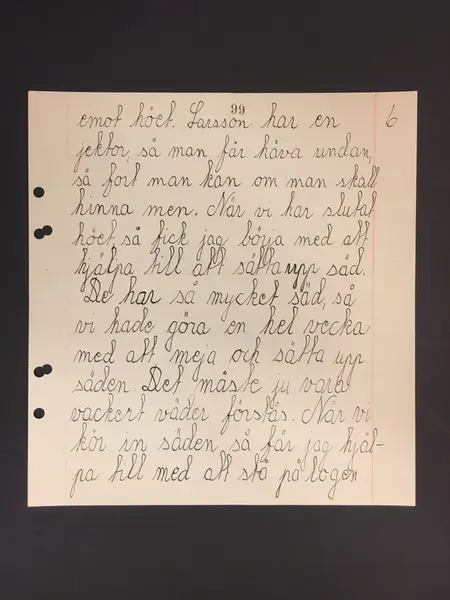 99
6
emot höet. Larsson har en
jektor, så man får håva undan,
så fort man kan om man skall
hinna men. När vi har slutat
höet, så fick jag börja med att
hjälpa till att sätta upp säd.
De har så mycket säd, så
vi hade göra en hel vecka
med att meja och sätta upp
säden. Det måste ju vara
vackert väder förstås. När vi
kör in säden, så får jag hjäl-
pa till med att stå på logen